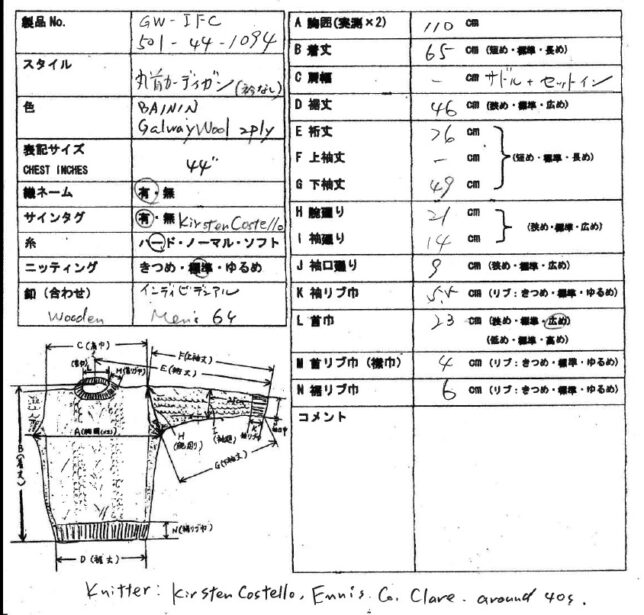 製品No. GW-IFC
501-44-1094
スタイル
丸首カーディガン(衿なし)
色 BAININ
Galway Wool 2ply
表記サイズ
CHEST INCHES 44"
織ネーム 有・無
サインタグ 有・無 Kirsten Costello
糸 ハード・ノーマル・ソフト
ニッティング きつめ・標準・ゆるめ
釦(合わせ) インディビデュアル
Wooden Men's 64
A 胸囲(実測×2) 110 cm
B 着丈 65 cm (短め・標準・長め)
C 肩幅 - cm サドル+セットイン
D 裾丈 46 cm (狭め・標準・広め)
E 裄丈 76 cm
F 上袖丈 - cm (短め・標準・長め)
G 下袖丈 49 cm
H 腕廻り 21 cm
(狭め・標準・広め)
I 袖廻り 14 cm
J 袖口廻り 9 cm (狭め・標準・広め)
K 袖リブ巾 5.5 cm (リブ：きつめ・標準・ゆるめ)
L 首巾 23 cm (狭め・標準・広め)
(低め・標準・高め)
M 首リブ巾(襟巾) 4 cm (リブ：きつめ・標準・ゆるめ)
N 裾リブ巾 6 cm (リブ：きつめ・標準・ゆるめ)
コメント
C(肩巾)
F(上袖丈)
E(裄丈)
A(胸囲×2)
B(着丈)
H
(腕廻)
G(下袖丈)
N(裾リブ巾)
D(裾丈)
Knitter: Kirsten Costello, Ennis. Co. Clare. around 40s.